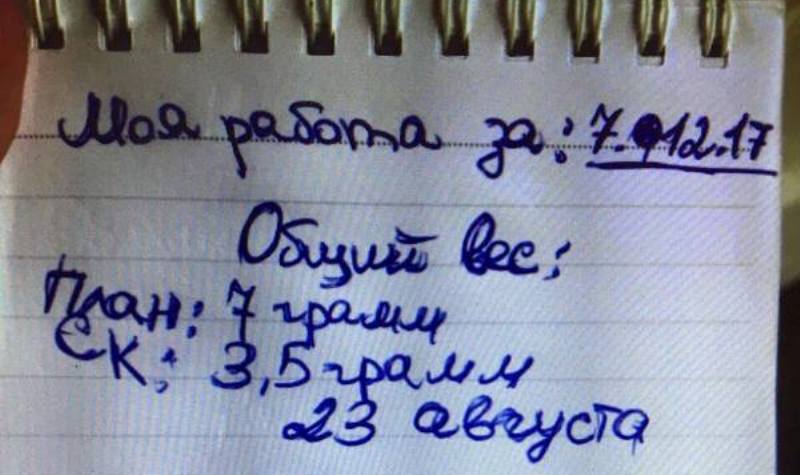 Моя работа за: 7.12.17
Общий вес:
План: 7 грамм
СК: 3,5 грамм
23 августа